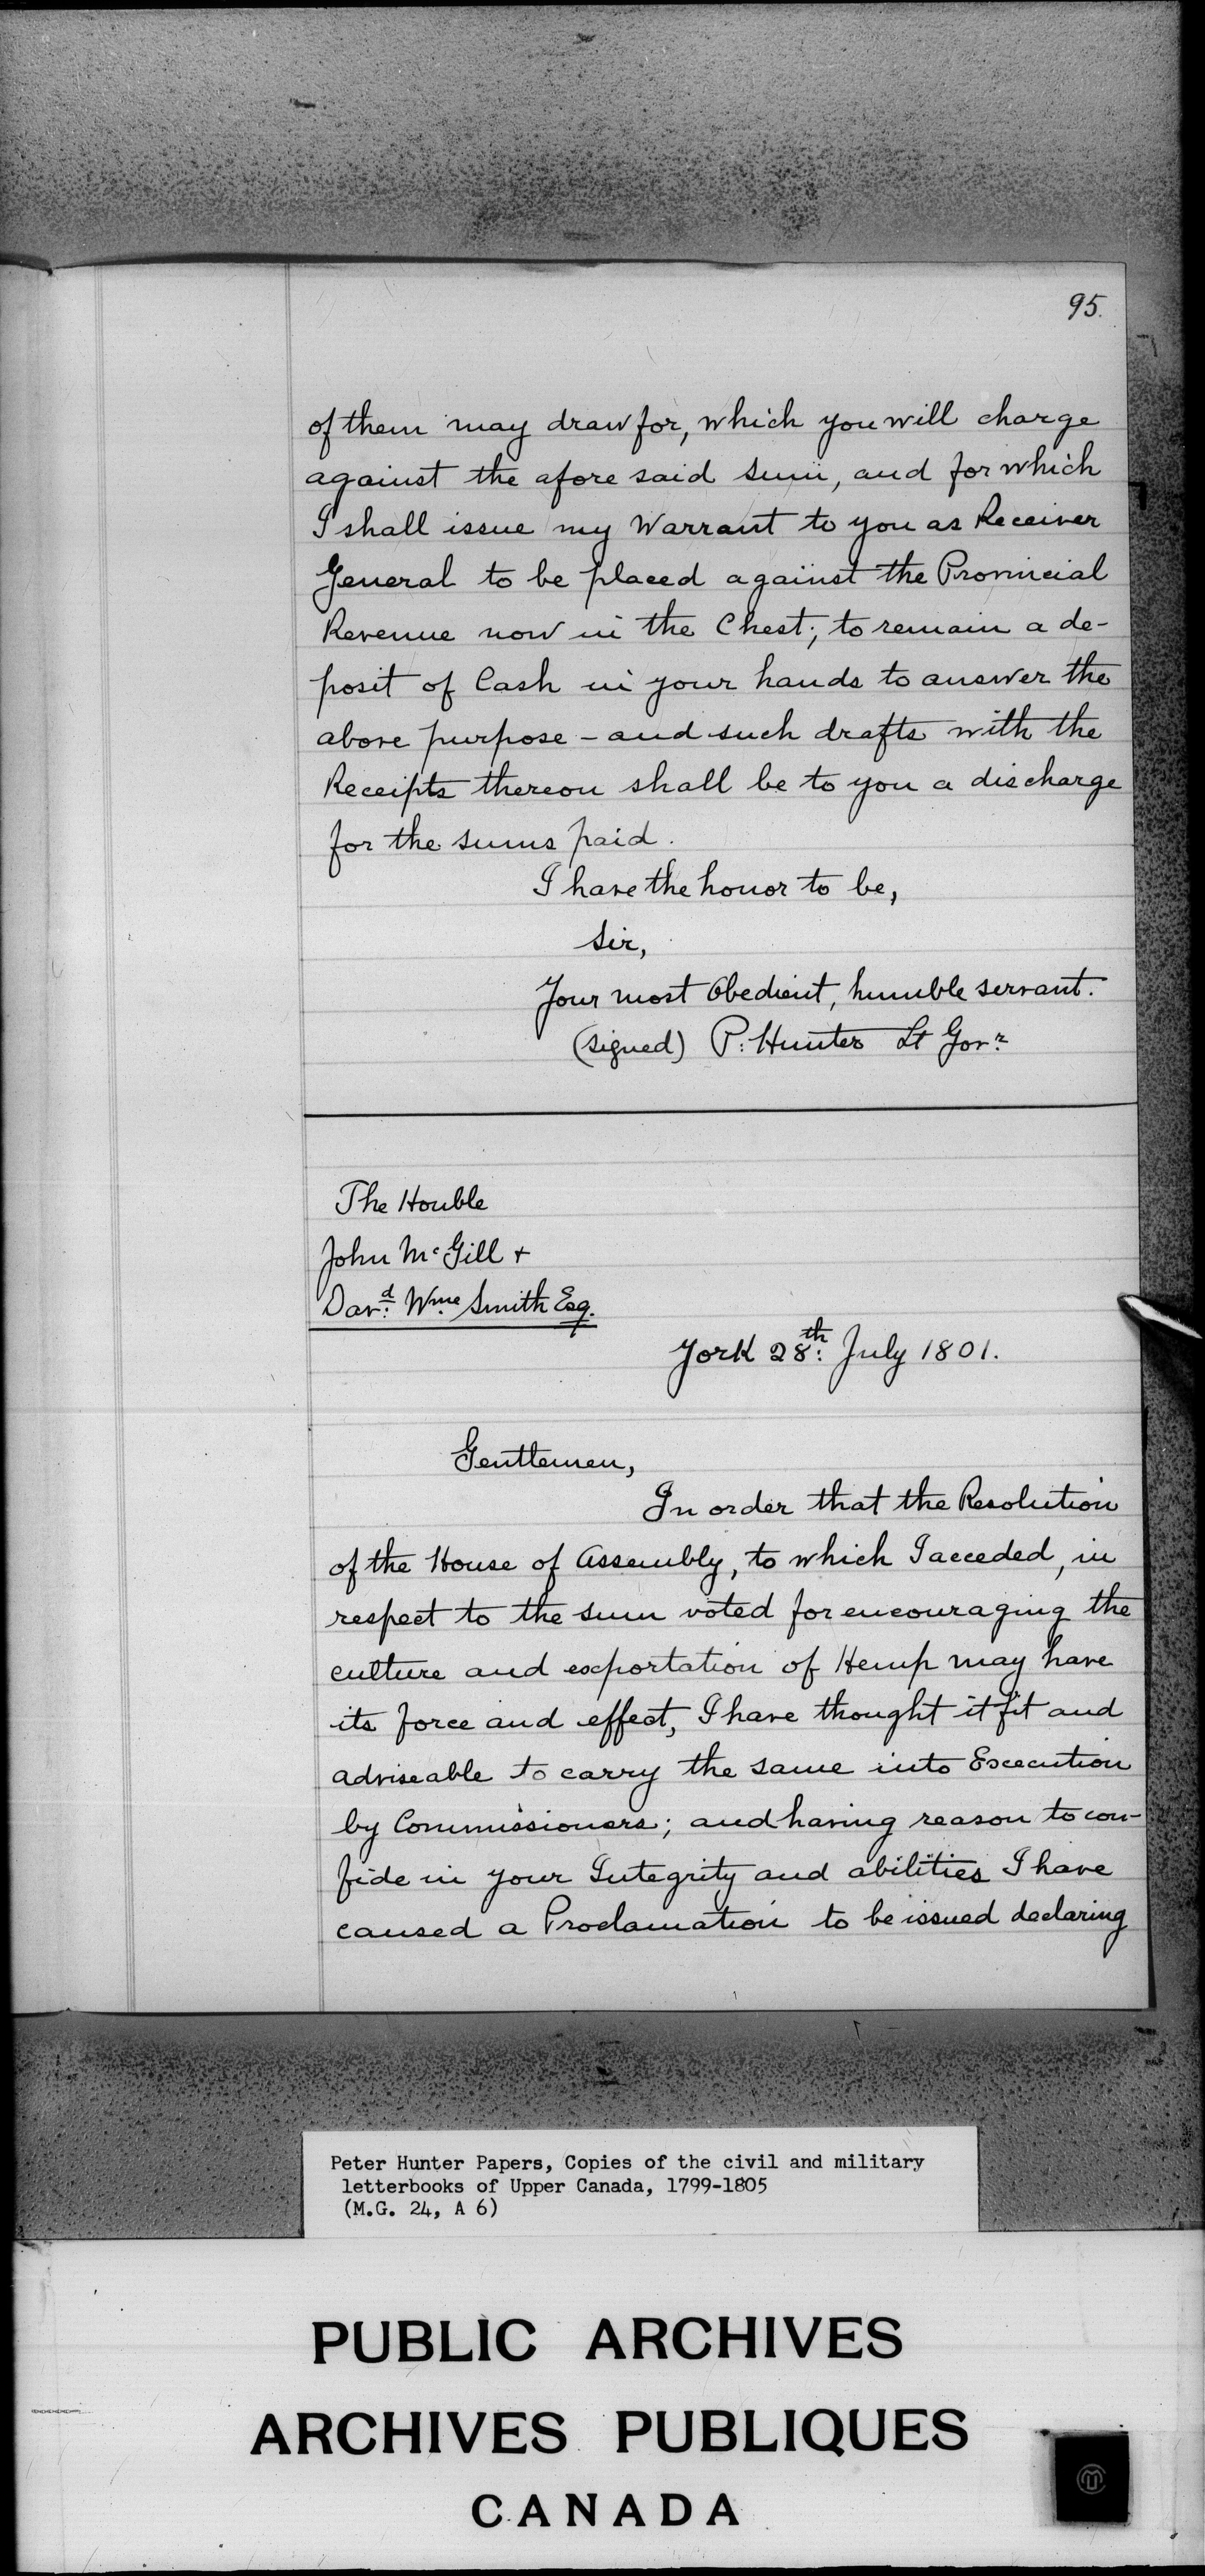 95.
of them may draw for, which you will charge
against the afore said sum, and for which
I shall issue my Warrant to you as Receiver
General to be placed against the Provincial
Revenue now in the Chest; to remain a de-
posit of Cash in your hands to answer the
above purpose - and such drafts with the
Receipts thereon shall be to you a discharge
for the sums paid.
I have the honor to be,
Sir,
Your most Obedient, humble servant.
(signed) P: Hunter Lt Govr
The Honble
John McGill +
Davd: Wme Smith Esq.
York 28th: July 1801.
Gentlemen,
In order that the Resolution
of the House of Assembly, to which I acceded, in
respect to the sum voted for encouraging the
culture and exportation of Hemp may have
its force and effect, I have thought it fit and
adviseable to carry the same into Execution
by Commissioners; and having reason to con-
fide in your Integrity and abilities I have
caused a Proclamation to be issued declaring
Peter Hunter Papers, Copies of the civil and military
letterbooks of Upper Canada, 1799-1805
(M.G. 24, A 6)
PUBLIC ARCHIVES
ARCHIVES PUBLIQUES
CANADA